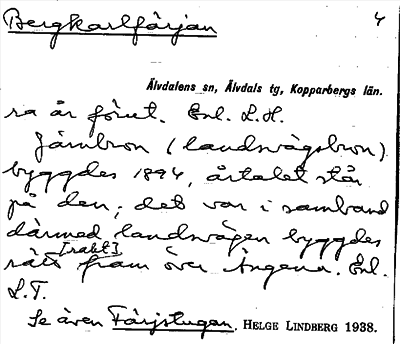 Bergkarlfärjan
4
Älvdalens sn, Älvdals tg, Kopparbergs län.
ra år förut. Enl. L.H.
Järnbron (landsvägsbron)
byggdes 1894, årtalet står
på den; det var i samband
därmed landsvägen byggdes
[rakt]
rätt fram över Ängena. Enl.
L.T.
Se även Färjstugan. HELGE LINDBERG 1938.